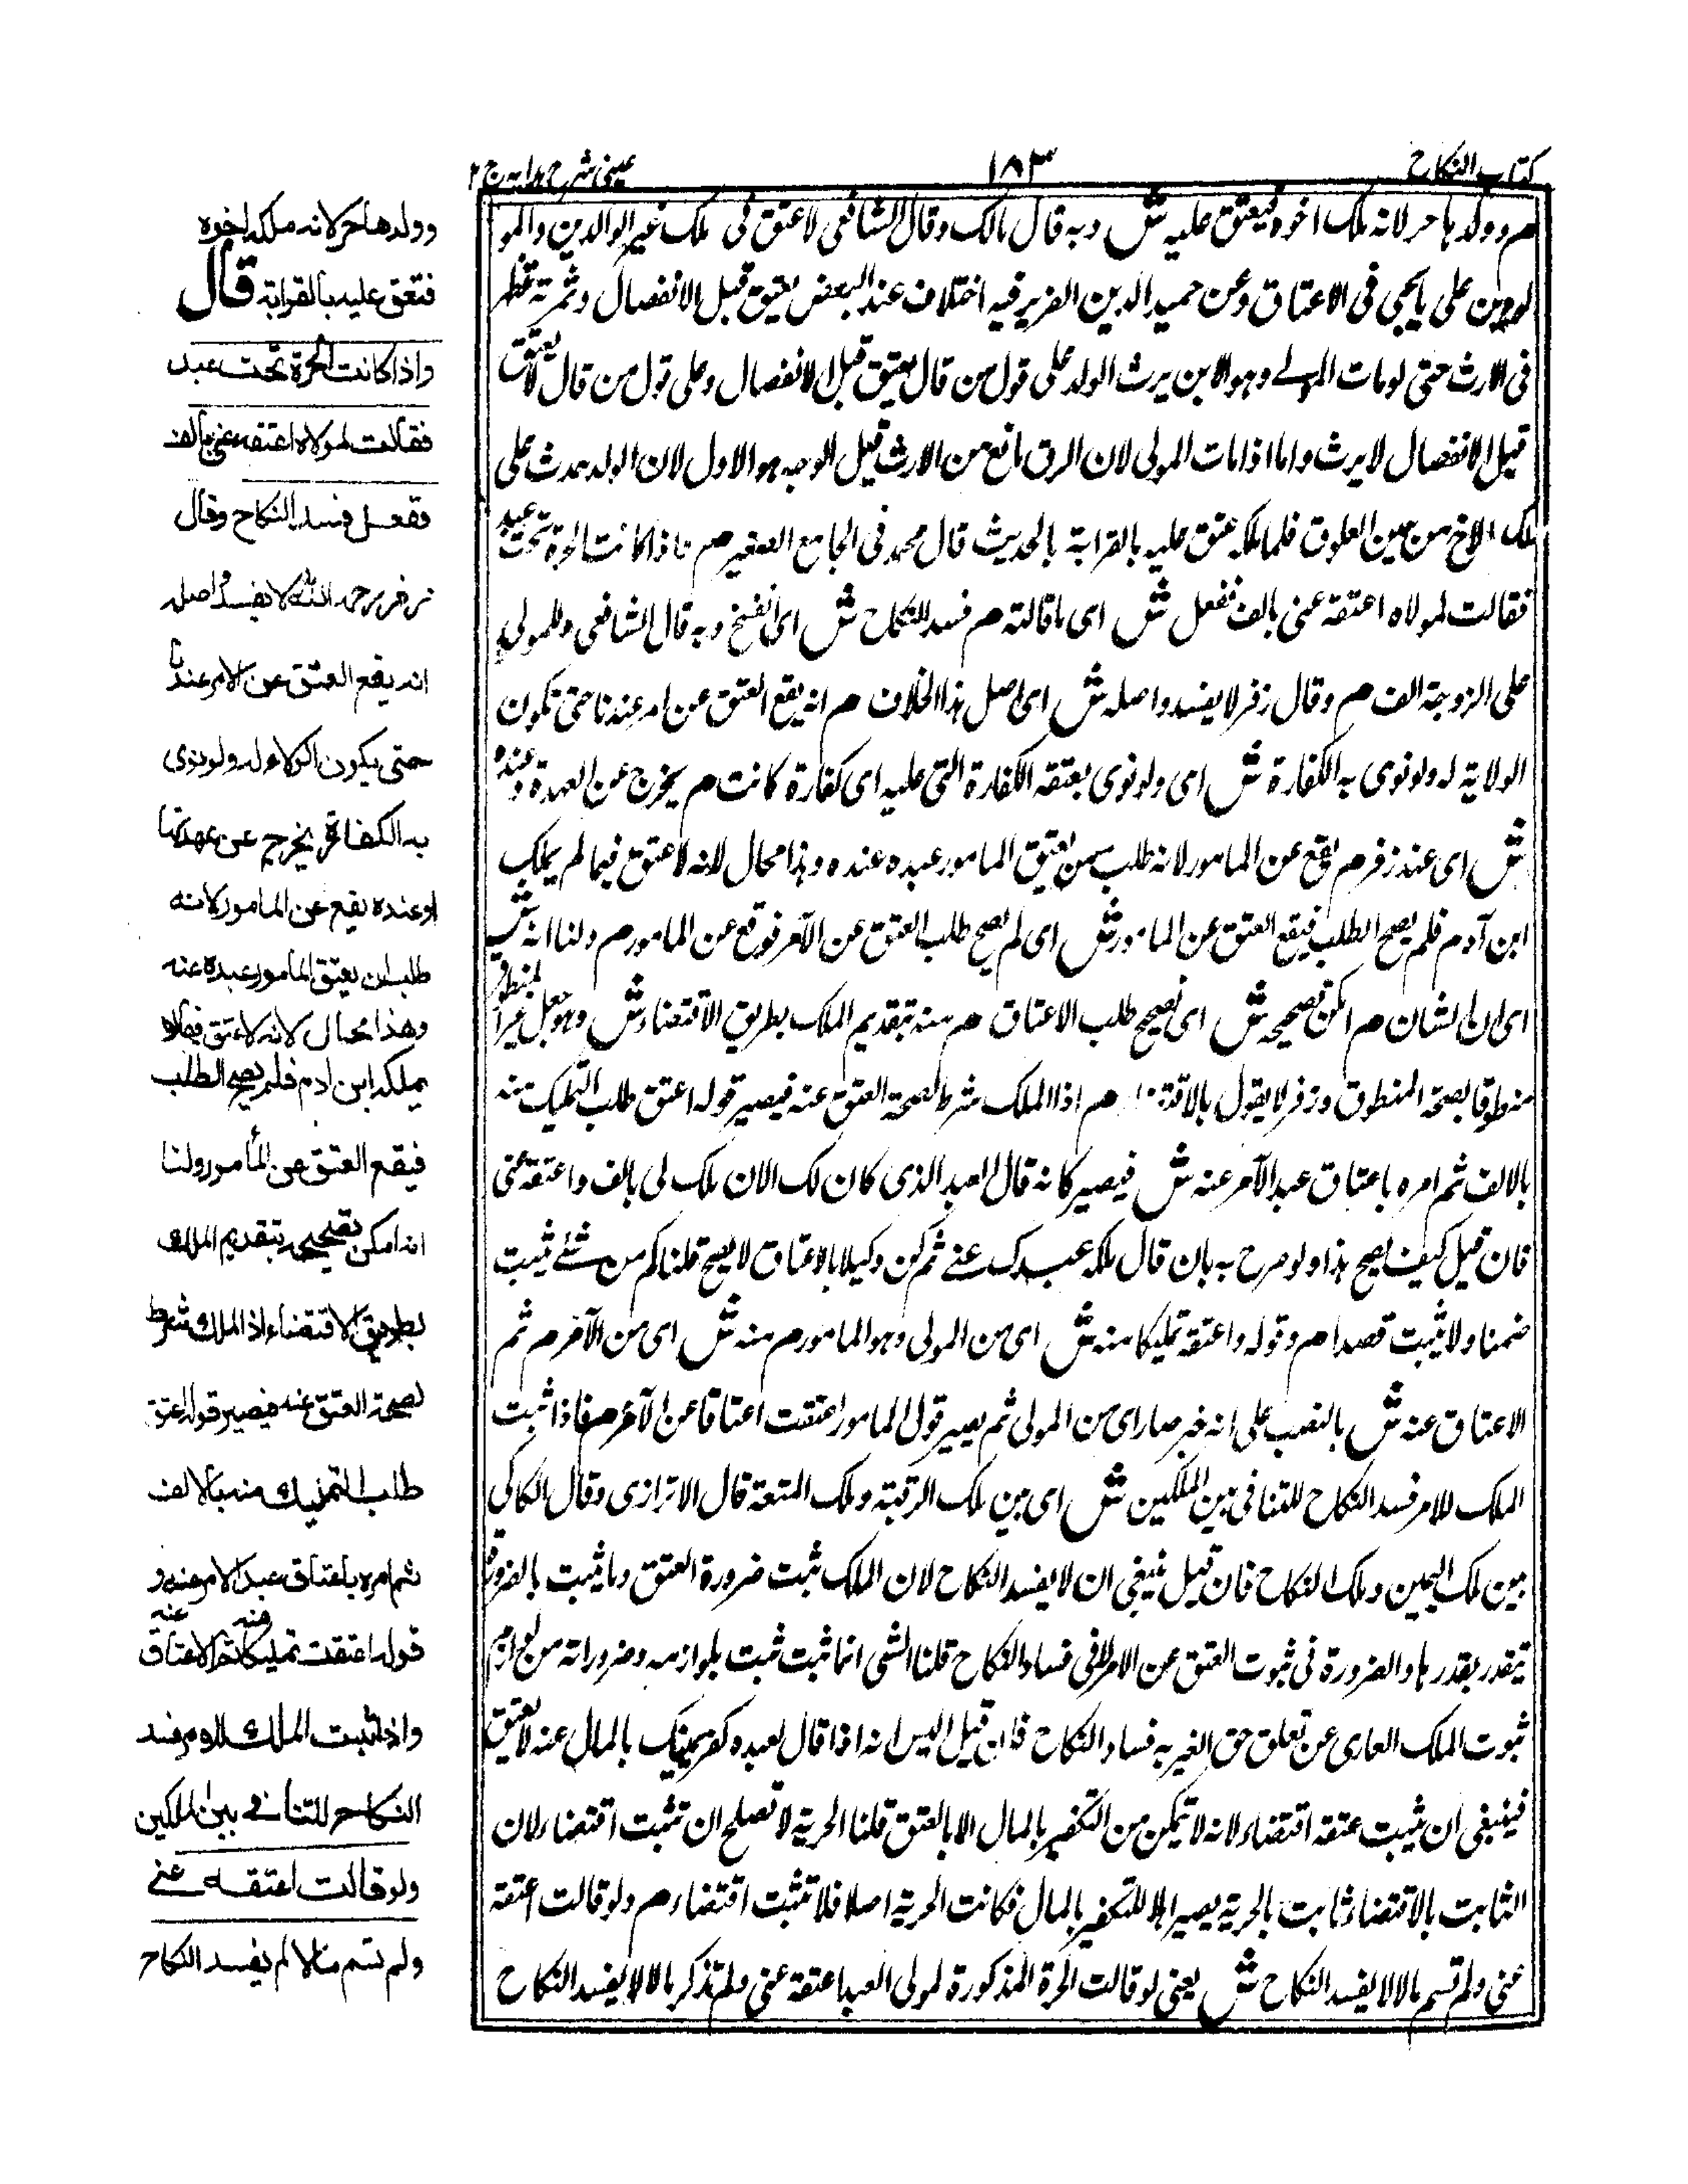 كتاب النكاح
١٨٣
عينى شرح هدايه ج ٢
م وولدها حر لانه ملك اخوه فيعتق عليه ش وبه قال مالك وقال الشافعى لا عتق فى ملك غير الوالدين والمو
لودين على ما يجى فى الاعتاق وعن حميد الدين الضرير فيه اختلاف عند البعض يعتق قبل الانفصال وثمرته تظهر
فى الارث حتى لومات المولے وهو الابن يرث الولد على قول من قال يعتق قبل الانفصال وعلى قول من قال لا يعتق
قبل الانفصال لا يرث واما اذا مات المولى لان الرق مانع من الارث قيل الوجه هو الاول لان الولد حدث على
ملك الاخ من حين العلوق فلما ملكه عتق عليه بالقرابة بالحديث قال محمد فى الجامع الصغير م واذا كانت الحرة تحت عبد
فقالت لمولاه اعتقه عنى بالف ففعل ش اى ما قالته م فسد النكاح ش اى انفسخ وبه قال الشافعى وللمولى
على الزوجة الف م وقال زفر لا يفسد واصله ش اى اصل هذا الخلاف م انه يقع العتق عن امر عندنا حتى تكون
الولاية له ولو نوى به الكفارة ش اى ولو نوى بعتقه الكفارة التى عليه اى كفارة كانت م يخرج عن العهدة وعنده
ش اى عند زفر م يقع عن المامور لانه طلب من يعتق المامور عبده عنده وهذا محال لانه لا عتق فيما لم يملك
ابن آدم م فلم يصح الطلب فيقع العتق عن المامور ش اى لم يصح طلب العتق عن الآمر فوقع عن المامور م ولنا انه ش
اى ان الشان م امكن تصحيحه ش اى تصحيح طلب الاعتاق م منه بتقديم الملك بطريق الاقتضاء ش وهو جعل غير المنطوق
منطوقا لصحة المنطوق وزفر لا يقول بالاقتضاء م اذ الملك شرط لصحة العتق عنه فيصير قوله اعتق طلب التمليك منه
بالالف ثم امره باعتاق عبد الآمر عنه ش فيصير كانه قال العبد الذى كان لك الان ملك لى بالف واعتقه عنى
فان قيل كيف يصح هذا ولو صرح به بان قال ملكه عبدك عنے ثم كن وكيلا بالاعتاق لا يصح قلنا كم من شئے يثبت
ضمنا ولا يثبت قصدا م وقوله واعتقه تمليكا منه ش اى من المولى وهو المامور م منه ش اى من الآمر م ثم
الاعتاق عنه ش بالنصب على انه خبر صار اى من المولى ثم يصير قول المامور اعتقت اعتاقا عن الآمر م فاذا ثبت
الملك للامر فسد النكاح للتنافى بين الملكين ش اى بين ملك الرقبة وملك المتعة قال الاترازى وقال الكاكى
بين ملك اليمين وملك النكاح فان قيل ينبغى ان لا يفسد النكاح لان الملك ثبت ضرورة العتق وما يثبت بالضرورة
يتقدر بقدرها والضرورة فى ثبوت العتق عن الامر لا فى فساد النكاح قلنا الشى انما ثبت ثبت بلوازمه وضروراته من لوازم
ثبوت الملك العارى عن تعلق حق الغير به فساد النكاح فان قيل اليس انه اذا قال لعبده كفر يمينك بالمال عنه لا يعتق
فينبغى ان يثبت عتقه اقتضاء لانه لا يتمكن من التكفير بالمال الا بالعتق قلنا الحرية لا تصلح ان تثبت اقتضاء لان
الثابت بالاقتضاء ثابت بالحرية يصير اهلا للتكفير بالمال فكانت الحرية اصلا فلا تثبت اقتضاء م ولو قالت اعتقه
عنى ولم تسم مالا لا يفسد النكاح ش يعنى لو قالت الحرة المذكورة لمولى العبد اعتقه عنى ولم تذكر مالا لا يفسد النكاح
وولدها حر لانه ملكه اخوه
فتعتق عليه بالقرابة قال
واذا كانت الحرة تحت عبد
فقالت لمولاه اعتقه عنى بالف
ففعل فسد النكاح وقال
زفر رحمه الله لا يفسد واصله
انه يقع العتق عن الامر عندنا
حتى يكون الولاء له ولو نوى
به الكفارة يخرج عن عهدتها
وعنده يقع عن المامور لانه
طلب ان يعتق المامور عبده عنه
وهذا محال لانه لا عتق فيما لا
يملكه ابن ادم فلم يصح الطلب
فيقع العتق عن المأمور ولنا
انه امكن تصحيحه بتقديم الملك
بطريق الاقتضاء اذ الملك شرط
لصحة العتق عنه فيصير قوله اعتق
طلب التمليك منه بالالف
ثم امره باعتاق عبد الامر عنه و
قوله اعتقت تمليكا منه ثم الاعتاق عنه
واذا ثبت الملك للامر فسد
النكاح للتنافے بين الملكين
ولو قالت اعتقه عنے
ولم تسم مالا لم يفسد النكاح